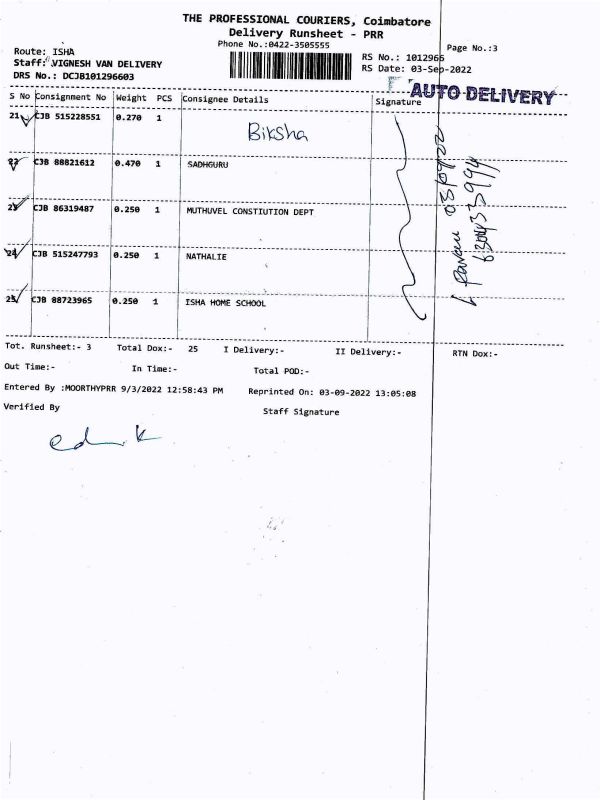 THE PROFESSIONAL COURIERS, Coimbatore
Delivery Runsheet - PRR
Phone No.:0422-3505555
Page No.:3
Route: ISHA
Staff: VIGNESH VAN DELIVERY
DRS No.: DCJB101296603
RS No.: 1012966
RS Date: 03-Sep-2022
AUTO DELIVERY
S No Consignment No Weight PCS Consignee Details Signature
21 CJB 515228551 0.270 1 Biksha
22 CJB 88821612 0.470 1 SADHGURU
23 CJB 86319487 0.250 1 MUTHUVEL CONSTIUTION DEPT
24 CJB 515247793 0.250 1 NATHALIE
25 CJB 88723965 0.250 1 ISHA HOME SCHOOL
Tot. Runsheet:- 3 Total Dox:- 25 I Delivery:- II Delivery:- RTN Dox:-
Out Time:- In Time:- Total POD:-
Entered By :MOORTHYPRR 9/3/2022 12:58:43 PM Reprinted On: 03-09-2022 13:05:08
Verified By Staff Signature